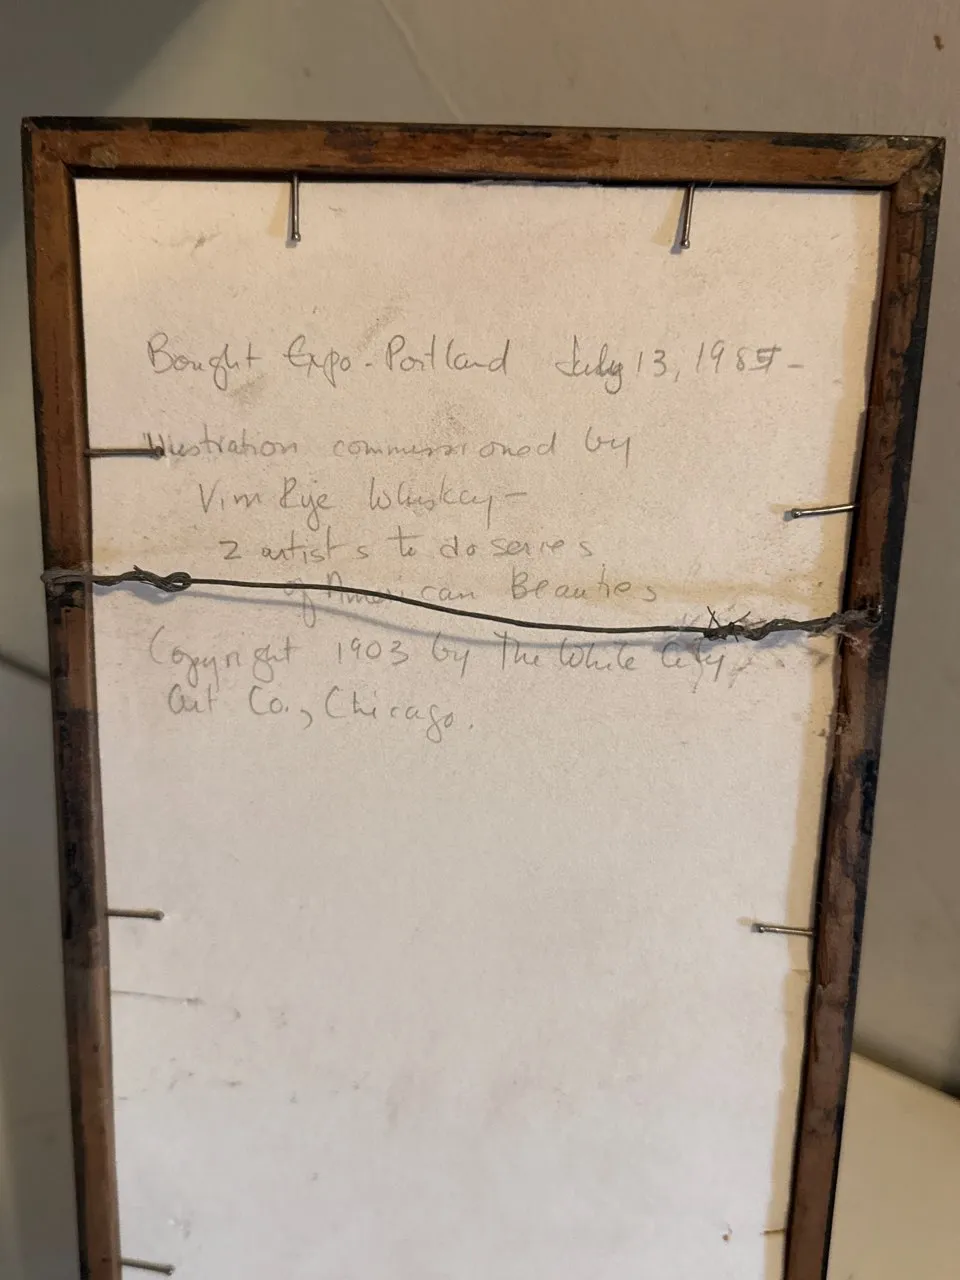 Bought Expo - Portland July 13, 1985 -
Illustration commissioned by
Vim Rye Whiskey -
2 artists to do series
of American Beauties
Copyright 1903 by The White City
Art Co., Chicago.